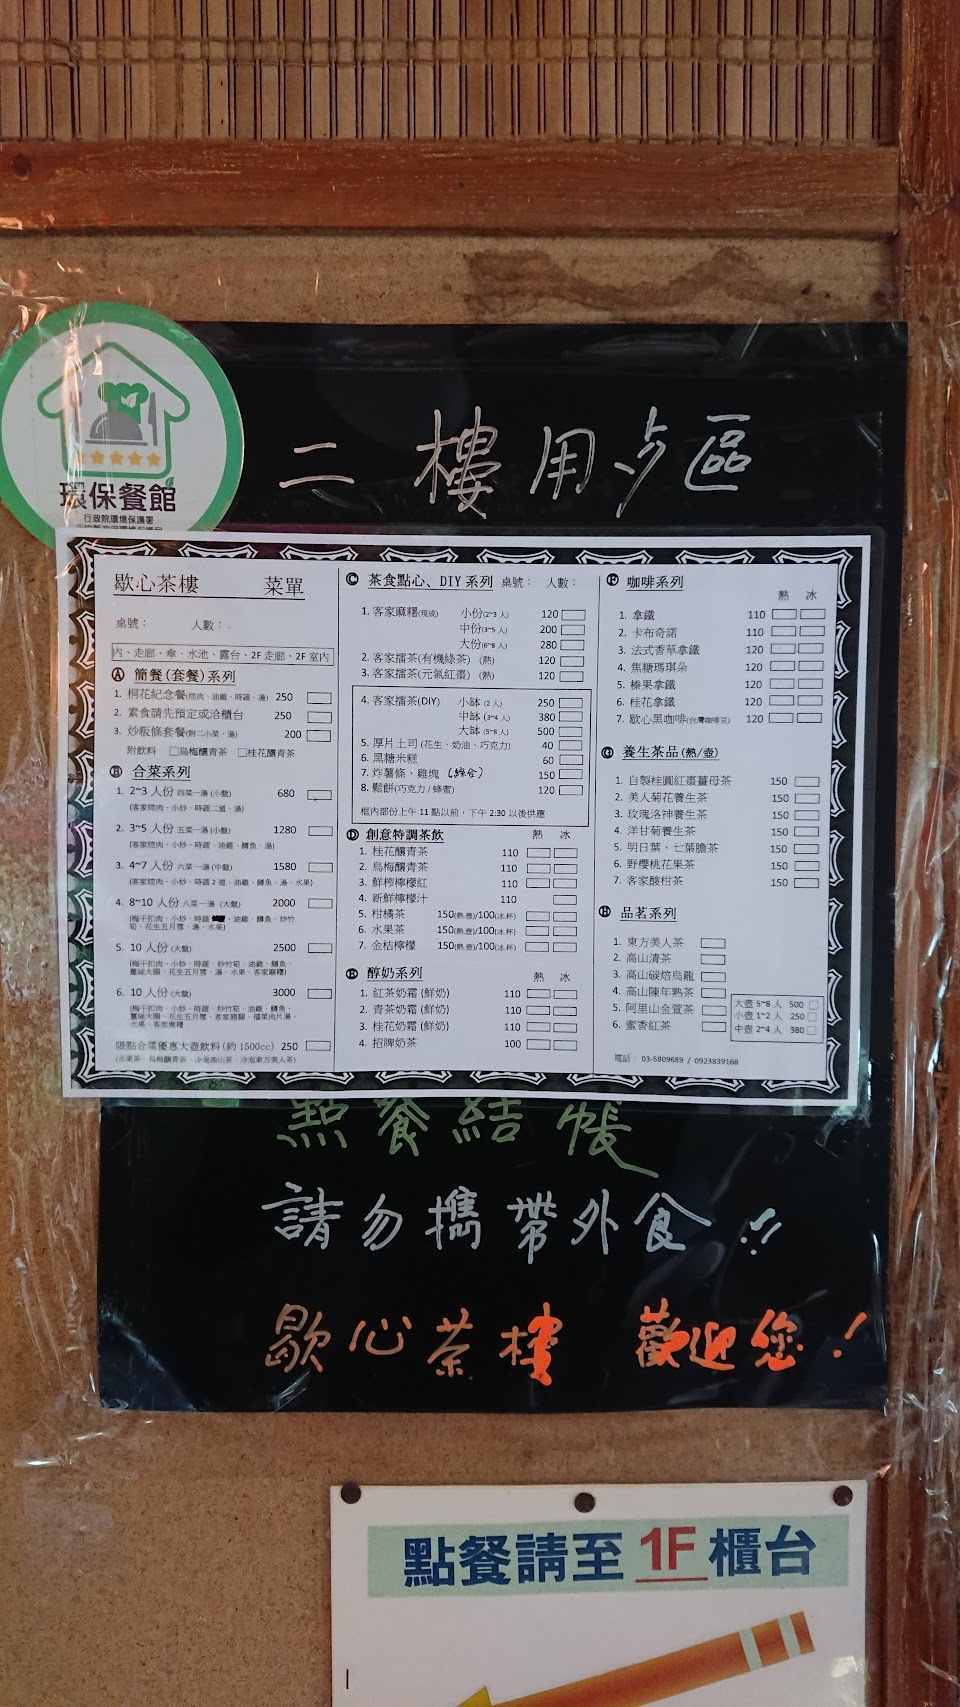 二樓用歺區
環保餐館
行政院環境保護署
歇心茶樓 菜單
桌號： 人數：
內、走廊、傘、水池、露台、2F 走廊、2F 室內
Ⓐ 簡餐(套餐)系列
1. 桐花紀念餐(焢肉、油雞、時蔬、湯) 250
2. 素食請先預定或洽櫃台 250
3. 炒粄條套餐(附二小菜、湯) 200
附飲料 □烏梅釀青茶 □桂花釀青茶
Ⓑ 合菜系列
1. 2~3 人份 四菜一湯 (小盤) 680
(客家焢肉、小炒、時蔬二道、湯)
2. 3~5 人份 五菜一湯(小盤) 1280
(客家焢肉、小炒、時蔬、油雞、鱒魚、湯)
3. 4~7 人份 六菜一湯 (中盤) 1580
(客家焢肉、小炒、時蔬 2 道、油雞、鱒魚、湯、水果)
4. 8~10 人份 八菜一湯 (大盤) 2000
(梅干扣肉、小炒、時蔬、油雞、鱒魚、炒竹
筍、花生五月雪、湯、水果)
5. 10 人份 (大盤) 2500
(梅干扣肉、小炒、時蔬、炒竹筍、油雞、鱒魚、
薑絲大腸、花生五月雪、湯、水果、客家麻糬)
6. 10 人份 (大盤) 3000
(梅干扣肉、小炒、時蔬、炒竹筍、油雞、鱒魚、
薑絲大腸、花生五月雪、客家豬腳、福菜肉片湯、
水果、客家麻糬
限點合菜優惠大壺飲料(約 1500cc) 250
(水果茶、烏梅釀青茶、冷泡高山茶、冷泡東方美人茶)
Ⓒ 茶食點心、DIY 系列 桌號： 人數：
1. 客家麻糬(現成) 小份(2~3 人) 120
中份(3~5 人) 200
大份(6~8 人) 280
2. 客家擂茶(有機綠茶) (熱) 120
3. 客家擂茶(元氣紅棗) (熱) 120
4. 客家擂茶(DIY) 小缽 (2 人) 250
中缽 (3~4 人) 380
大缽 (5~8 人) 500
5. 厚片土司 (花生、奶油、巧克力) 40
6. 黑糖米糕 60
7. 炸薯條、雞塊 (綜合) 150
8. 鬆餅(巧克力 / 蜂蜜) 120
框內部份上午 11 點以前，下午 2:30 以後供應
Ⓓ 創意特調茶飲 熱 冰
1. 桂花釀青茶 110
2. 烏梅釀青茶 110
3. 鮮榨檸檬紅 110
4. 新鮮檸檬汁 110
5. 柑橘茶 150(熱.壺)/100(冰杯)
6. 水果茶 150(熱.壺)/100(冰杯)
7. 金桔檸檬 150(熱.壺)/100(冰杯)
Ⓔ 醇奶系列 熱 冰
1. 紅茶奶霜 (鮮奶) 110
2. 青茶奶霜 (鮮奶) 110
3. 桂花奶霜 (鮮奶) 110
4. 招牌奶茶 100
Ⓕ 咖啡系列
熱 冰
1. 拿鐵 110
2. 卡布奇諾 110
3. 法式香草拿鐵 120
4. 焦糖瑪琪朵 120
5. 榛果拿鐵 120
6. 桂花拿鐵 120
7. 歇心黑咖啡(台灣咖啡豆) 120
Ⓖ 養生茶品(熱/壺)
1. 自製桂圓紅棗薑母茶 150
2. 美人菊花養生茶 150
3. 玫瑰洛神養生茶 150
4. 洋甘菊養生茶 150
5. 明日葉、七葉膽茶 150
6. 野櫻桃花果茶 150
7. 客家酸柑茶 150
Ⓗ 品茗系列
1. 東方美人茶
2. 高山清茶
3. 高山碳焙烏龍
4. 高山陳年熟茶
5. 阿里山金萱茶
6. 蜜香紅茶
大壺 5~8 人 500
小壺 1~2 人 250
中壺 2~4 人 380
電話： 03-5809689 / 0923839168
點餐結帳
請勿攜帶外食!!
歇心茶樓 歡迎您！
點餐請至 1F 櫃台